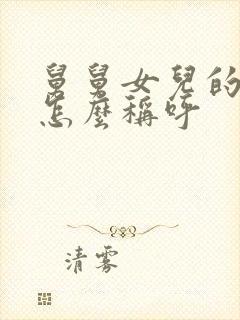 舅舅女兒的
怎麼稱呼
清霧